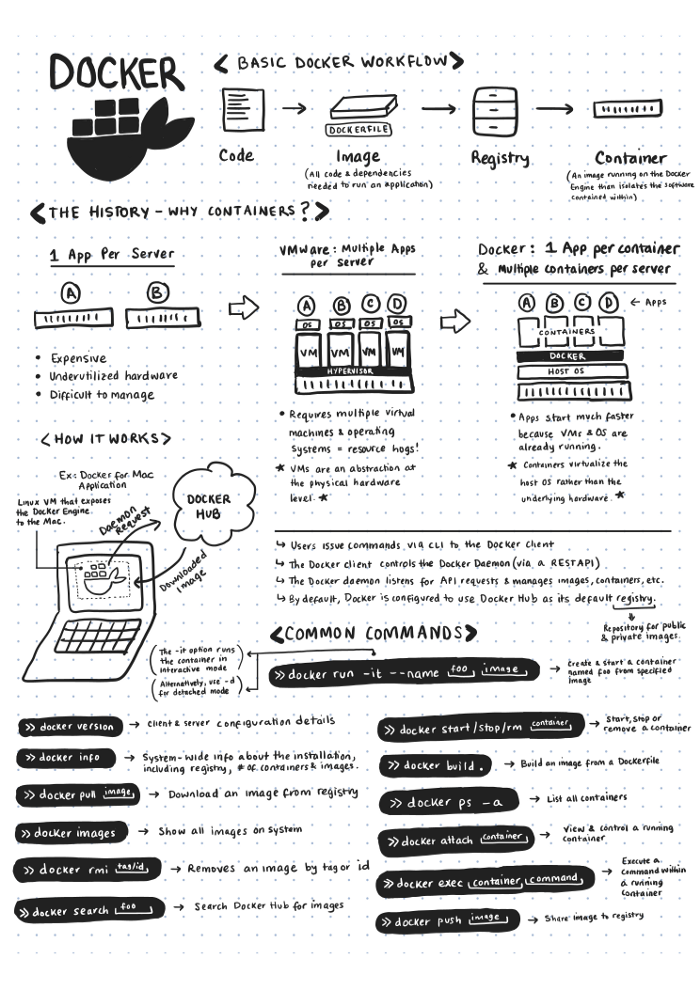 DOCKER
< BASIC DOCKER WORKFLOW >
Code
DOCKERFILE
Image
(All code & dependencies
needed to run an application)
Registry
Container
(An image running on the Docker
Engine than isolates the software
contained within)
< THE HISTORY - WHY CONTAINERS? >
1 App Per Server
A B
• Expensive
• Underutilized hardware
• Difficult to manage
VMWare: Multiple Apps
per Server
A B C D
OS OS OS OS
VM VM VM VM
HYPERVISOR
• Requires multiple virtual
machines & operating
Systems = resource hogs!
★ VMs are an abstraction at
the physical hardware
level. ★
Docker: 1 App per container
& Multiple containers per server
A B C D ← Apps
CONTAINERS
DOCKER
HOST OS
• Apps start much faster
because VMs & OS are
already running.
★ Containers virtualize the
host OS rather than the
underlying hardware. ★
< HOW IT WORKS >
Ex: Docker for Mac
Application
Linux VM that exposes
the Docker Engine
to the Mac.
Daemon
Request
DOCKER
HUB
Downloaded
Image
↳ Users issue commands via CLI to the Docker Client
↳ The Docker client controls the Docker Daemon (via a REST API)
↳ The Docker daemon listens for API requests & manages images, containers, etc.
↳ By default, Docker is configured to use Docker Hub as its default registry.
Repository for public
& private images.
< COMMON COMMANDS >
(The -it option runs
the container in
interactive mode)
(Alternatively, use -d
for detached mode)
>> docker run -it --name foo image → Create & start a container
named foo from specified
image
>> docker version → Client & server configuration details
>> docker info → System-wide info about the installation,
including registry, # of containers & images.
>> docker pull image → Download an image from registry
>> docker images → Show all images on system
>> docker rmi tag/id → Removes an image by tag or id
>> docker search foo → Search Docker Hub for images
>> docker start/stop/rm container → Start, stop or
remove a container
>> docker build . → Build an image from a Dockerfile
>> docker ps -a → List all containers
>> docker attach container → View & control a running
container
>> docker exec container command → Execute a
command within
a running
container
>> docker push image → Share image to registry